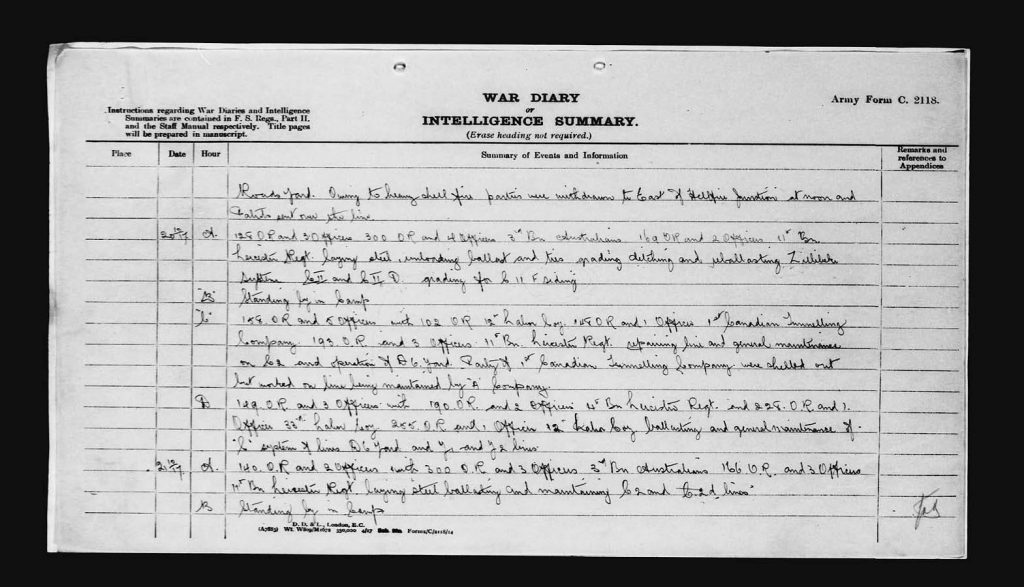 Instructions regarding War Diaries and Intelligence
Summaries are contained in F. S. Regs., Part II.
and the Staff Manual respectively. Title pages
will be prepared in manuscript.
WAR DIARY
or
INTELLIGENCE SUMMARY.
(Erase heading not required.)
Army Form C. 2118.
Place Date Hour Summary of Events and Information Remarks and references to Appendices
Roads Yard. Owing to heavy shell fire parties were withdrawn to East of Hellfire Junction at noon and
sent over the line.
A. 128 O.R and 3 Officers 300 O.R and 4 Officers 3rd Bn Australians 169 O.R and 2 Officers 11th Bn.
Leicester Regt. laying steel, unloading ballast and ties grading ditching and reballasting Zillebeke
System C II and C II D. grading for C 11 F siding
"B" Standing by in Camp
"C" 158 O.R and 5 Officers with 102 O.R 12th Labor Coy. 148 O.R and 1 Officer 1st Canadian Tunnelling
Company. 193 O.R and 3 Officers 11th Bn. Leicester Regt. repairing line and general maintenance
on C2 and operation of D6 Yard Party of 1st Canadian Tunnelling Company were shelled out
but worked on line being maintained by "A" Company.
D 149 O.R and 3 Officers with 190 O.R. and 2 Officers Bn Leicester Regt. and 228 O.R and 1
Officer 33rd Labor Coy. 255 O.R and 1 Officer 12th Labor Coy ballasting and general maintenance of
"C" system of lines D6 Yard and Y1 and Y2 lines
A. 140 O.R and 2 Officers with 300 O.R and 3 Officers 3rd Bn Australians 166 O.R. and 3 Officers
11th Bn Leicester Regt laying steel ballasting and maintaining C2 and C.2.d lines
B Standing by in Camp
D. D. & L., London, E.C.
Forms/C/2118/14